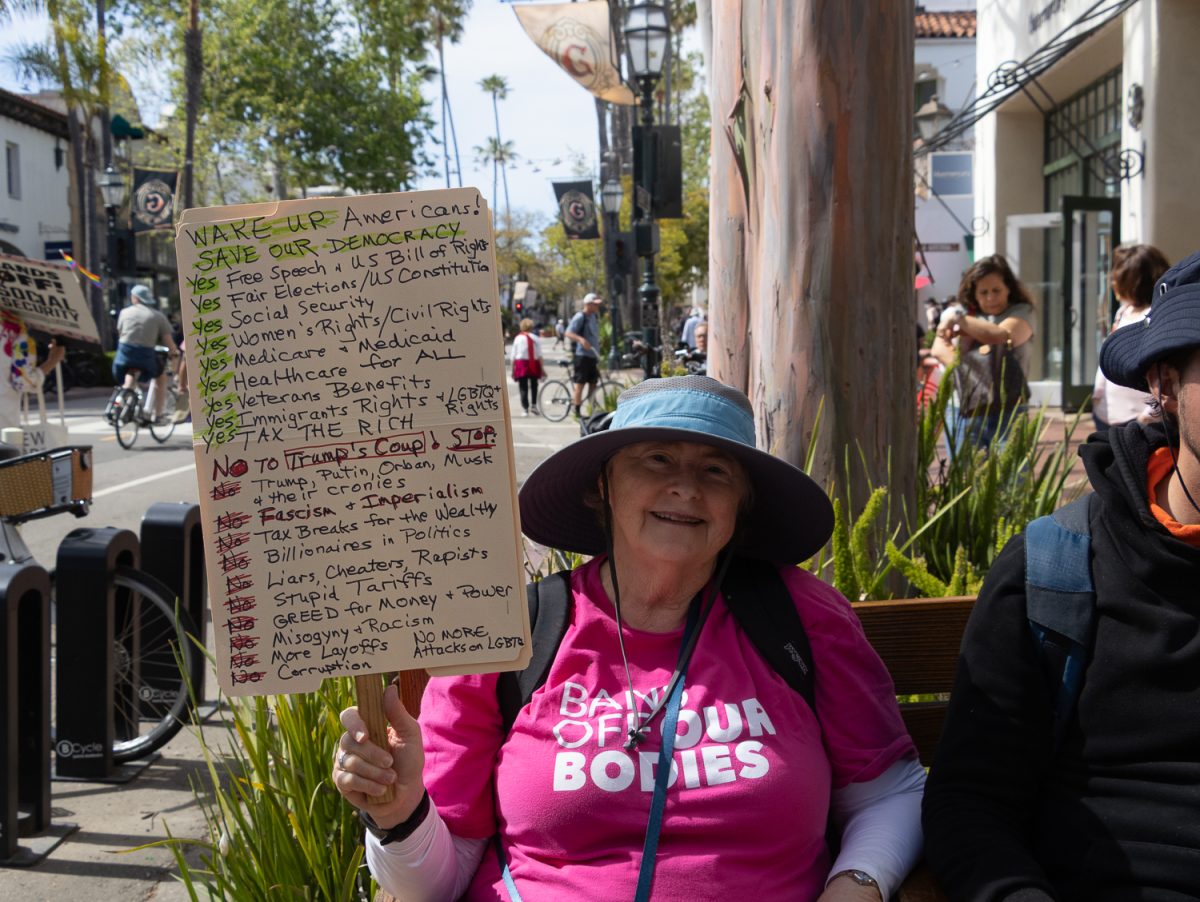 WAKE UP Americans!
SAVE OUR DEMOCRACY
Yes Free Speech + US Bill of Rights
Yes Fair Elections/US Constitutio
Yes Social Security
Yes Women's Rights/Civil Rights
Yes Medicare + Medicaid
Yes Healthcare for ALL
Yes Veterans Benefits
Yes Immigrants Rights + LGBTQ+ Rights
Yes TAX THE RICH
NO TO Trump's Coup! STOP
No Trump, Putin, Orban, Musk
+ their cronies
No Fascism + Imperialism
No Tax Breaks for the Wealthy
No Billionaires in Politics
No Liars, Cheaters, Rapists
No Stupid Tariffs
No GREED for Money + Power
No Misogyny + Racism
No More Layoffs
No Corruption
NO MORE
Attacks on LGBTQ
HANDS
OFF!
SOCIAL
SECURITY
EW
BANS
OFF OUR
BODIES
BCycle
BCycle
G
G
G